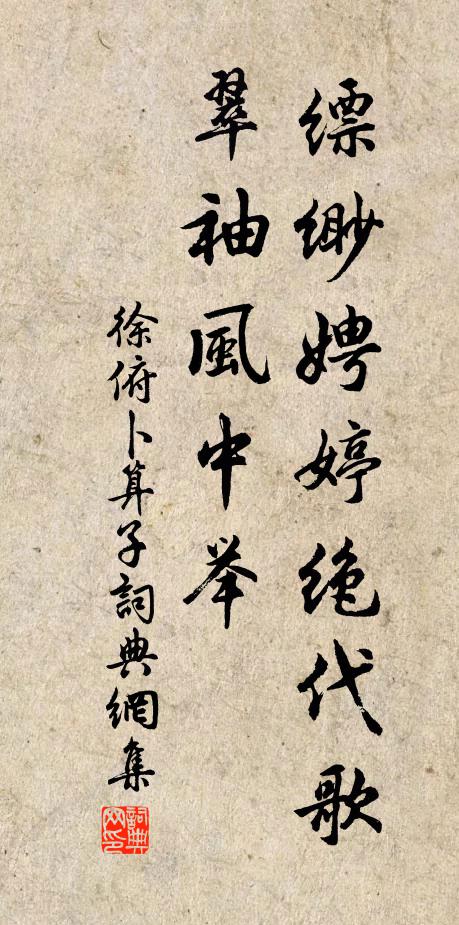 縹緲娉婷絶代歌
翠袖風中举
徐俯卜算子詞典網集
詞典网印